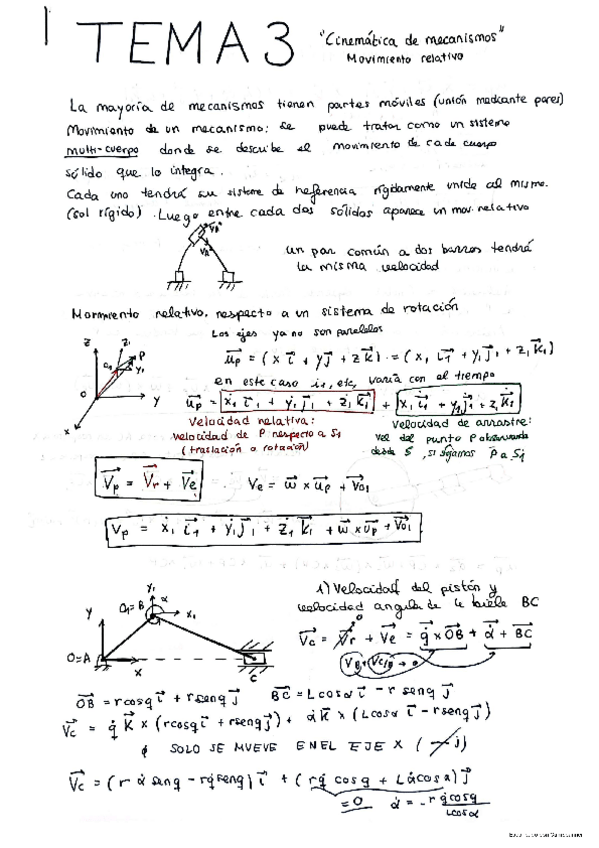 TEMA 3 "Cinemática de mecanismos"
Movimiento relativo
La mayoría de mecanismos tienen partes móviles (unión mediante pares)
Movimiento de un mecanismo: se puede tratar como un sistema
multi-cuerpo donde se describe el movimiento de cada cuerpo
sólido que lo integra.
Cada uno tendrá su sistema de referencia rígidamente unido al mismo.
(sol rígido). Luego entre cada dos sólidos aparece un mov. relativo
un par común a dos barras tendrá
la misma velocidad
Movimiento relativo, respecto a un sistema de rotación
Los ejes ya no son paralelos
z z₁ P O₁ y₁ O y x
u⃗p = (x i⃗ + y j⃗ + z k⃗) = (x₁ i⃗₁ + y₁ j⃗₁ + z₁ k⃗₁)
en este caso i₁, etc, varía con el tiempo
u̇⃗p = ẋ₁ i⃗₁ + ẏ₁ j⃗₁ + ż₁ k⃗₁ + x₁ i̇⃗₁ + y₁ j̇⃗₁ + z₁ k̇⃗₁
Velocidad relativa: Velocidad de arrastre:
velocidad de P respecto a S₁ vel del punto P observada
(traslación o rotación) desde S, si fijamos P a S₁
V⃗p = V⃗r + V⃗e V⃗e = ω⃗ × u⃗p + V⃗o₁
V⃗p = ẋ₁ i⃗₁ + ẏ₁ j⃗₁ + ż₁ k⃗₁ + ω⃗ × u⃗p + V⃗o₁
1) Velocidad del pistón y
velocidad angular de la biela BC
y O₁=B y₁ α x₁ O=A x C
V⃗c = V⃗r + V⃗e = q̇⃗ × OB + α̇⃗ + BC
OB = r cosq i⃗ + r senq j⃗ BC = L cosα i⃗ - r senq j⃗
V⃗c = q̇ k⃗ × (r cosq i⃗ + r senq j⃗) + α̇ k⃗ × (L cosα i⃗ - r senq j⃗)
SOLO SE MUEVE EN EL EJE X
V⃗c = (r α̇ senq - r q̇ senq) i⃗ + (r q̇ cosq + L α̇ cosα) j⃗
=0 α̇ = - r q̇ cosq / L cosα